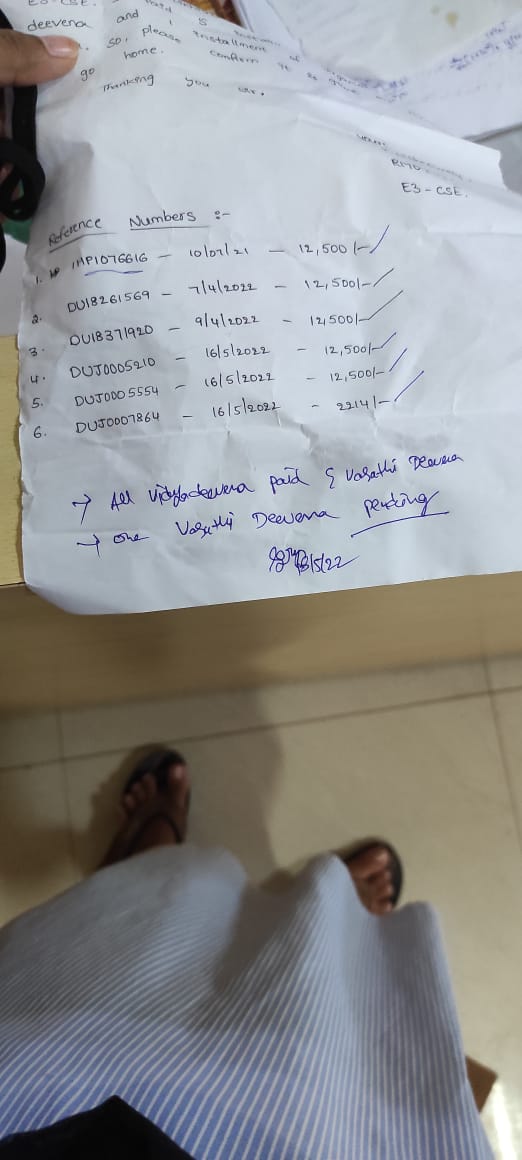 deevena and
so, please installment of
go home. confirm
Thanking you sir.
E3-CSE.
Reference Numbers :-
1. IMP1076616 - 10/07/21 - 12,500/-
2. DU18261569 - 7/4/2022 - 12,500/-
3. DU18371920 - 9/4/2022 - 12,500/-
4. DUJ0005210 - 16/5/2022 - 12,500/-
5. DUJ0005554 - 16/5/2022 - 12,500/-
6. DUJ0007864 - 16/5/2022 - 2214/-
→ All Vidyadeevena paid & Vasathi Deevena
→ one Vasathi Deevena pending
18/5/22